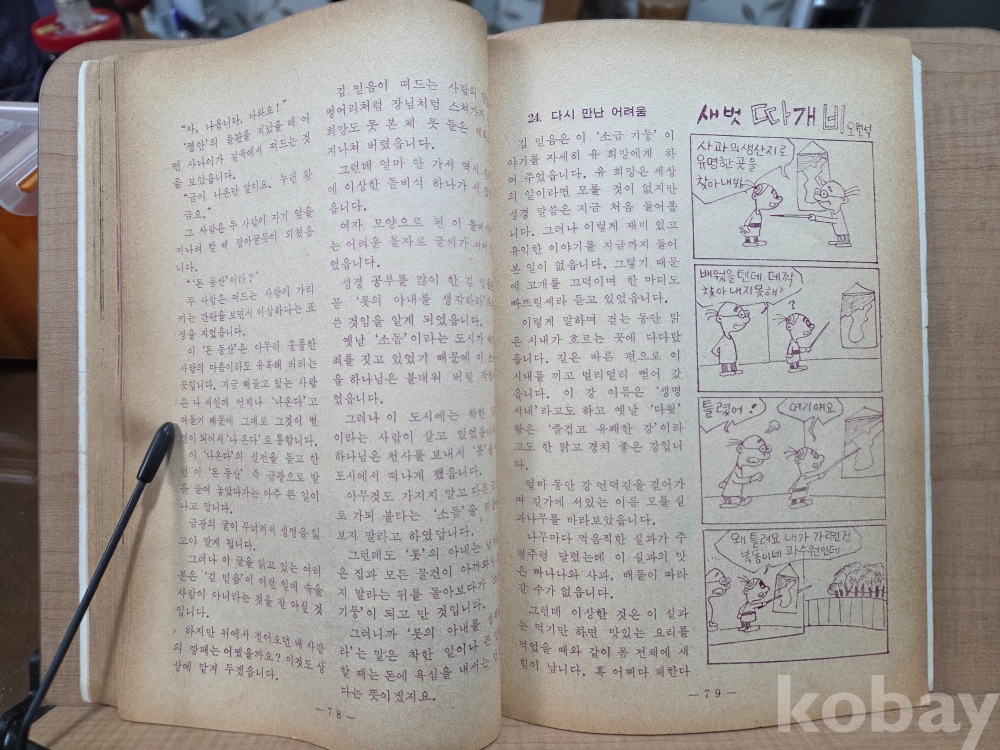 "자, 나옵니다, 나와요!"
'평안'의 들판을 지났을 때 어
떤 사나이가 길목에서 떠드는 것
을 보았습니다.
"금이 나온단 말이요. 누런 황
금요."
그 사람은 두 사람이 자기 앞을
지나려 할 때
니다.
"'돈 동산'이라?"
두 사람은 떠드는 사람이 가리
키는 간판을 보면서 이상하다는 표
정을 지었읍니다.
이 '돈 동산'은 아무리 훌륭한
사람의 마음이라도 유혹해 버리는
곳입니다. 지금 떠들고 있는 사람
은 나 씨인데 언제나 '나온다'고
떠들기 때문에 그대로 그것이 별
명이 되어서 '나 온다'로 통합니다.
이 '나온다'의 선전을 듣고 한
번 이 '돈 동산' 즉 금광으로 발
을 들여 놓았다가는 아주 큰 일이
나고 맙니다.
금광의 굴이 무너져서 생명을 잃
고야 말게 됩니다.
그러나 이 글을 읽고 있는 여러
분은 '김 믿음'이 이런 일에 속을
사람이 아니라는 것을 잘 아실 것
입니다.
하지만 뒤에서 걸어오던 네 사람
의 깡패는 어땠을까요? 이것도 상
상에 맡겨 두겠습니다.
김 믿음이 떠드는 사람의
벙어리처럼 장님처럼 스쳐가자
희망도 못 본 체 못 들은
지나쳐 버렸습니다.
그런데 얼마 안 가서 역시
에 이상한 돌비석 하나가
읍니다.
여자 모양으로 된 이
는 어려운 돌자로 글씨가
었읍니다.
성경 공부를 많이 한 김
꼳 '롯의 아내를 생각하라'
쓴 것임을 알게 되었읍니다.
옛날 '소돔'이라는 도시가
죄를 짓고 있었기 때문에 이
을 하나님은 불태워 버릴
었읍니다.
그러나 이 도시에는 착한
이라는 사람이 살고 있었습니
하나님은 천사를 보내서 '롯'을
도시에서 떠나게 했읍니다.
아무것도 가지지 말고 다른
로 가되 불타는 '소돔'을
보지 말라고 하였답니다.
그런데도 '롯'의 아내는
은 집과 모든 물건이 아까와서
지 말라는 뒤를 돌아보다가
기둥'이 되고 만 것입니다.
그러니까 '롯의 아내를
라'는 말은 착한 일이나
할 때는 돈에 욕심을 내서는
다는 뜻이겠지요.
— 78 —
24. 다시 만난 어려움
김 믿음은 이 '소금 기둥' 이
야기를 자세히 유 희망에게 하
여 주었읍니다. 유 희망은 세상
의 일이라면 모를 것이 없지만
성경 말씀은 지금 처음 들어봅
니다. 그러나 이렇게 재미 있고
유익한 이야기를 지금까지 들어
본 일이 없읍니다. 그렇기 때문
에 고개를 끄덕이며 한 마디도
빠뜨릴세라 듣고 있었읍니다.
이렇게 말하며 걷는 동안 맑
은 시내가 흐르는 곳에 다다랐
읍니다. 길은 바른 편으로 이
시내를 끼고 멀리멀리 뻗어 갔
읍니다. 이 강 이름은 '생명
시내'라고도 하고 옛날 '다윗'
왕은 '즐겁고 유쾌한 강'이라
고도 한 맑고 경치 좋은 강입니
다.
얼마 동안 강 언덕길을 걸어가
며 길가에 서있는 이름 모를 실
과나무를 바라보았읍니다.
나무마다 먹음직한 실과가 주
렁주렁 달렸는데 이 실과의 맛
은 빠나나와 사과, 배들이 따라
갈 수가 없읍니다.
그런데 이상한 것은 이 실과
는 먹기만 하면 맛있는 요리를
먹었을 때와 같이 몸 전체에 새
힘이 납니다. 혹 어쩌다 체한다
새벗 따개비
오원석
사과의 생산지로
유명한 곳을
찾아내봐
배웠을 텐데 여태
찾아 내지 못해?
?
틀렸어!
여기예요
왜 틀려요 내가 가리킨건
복동이네 과수원인데
— 79 —
kobay